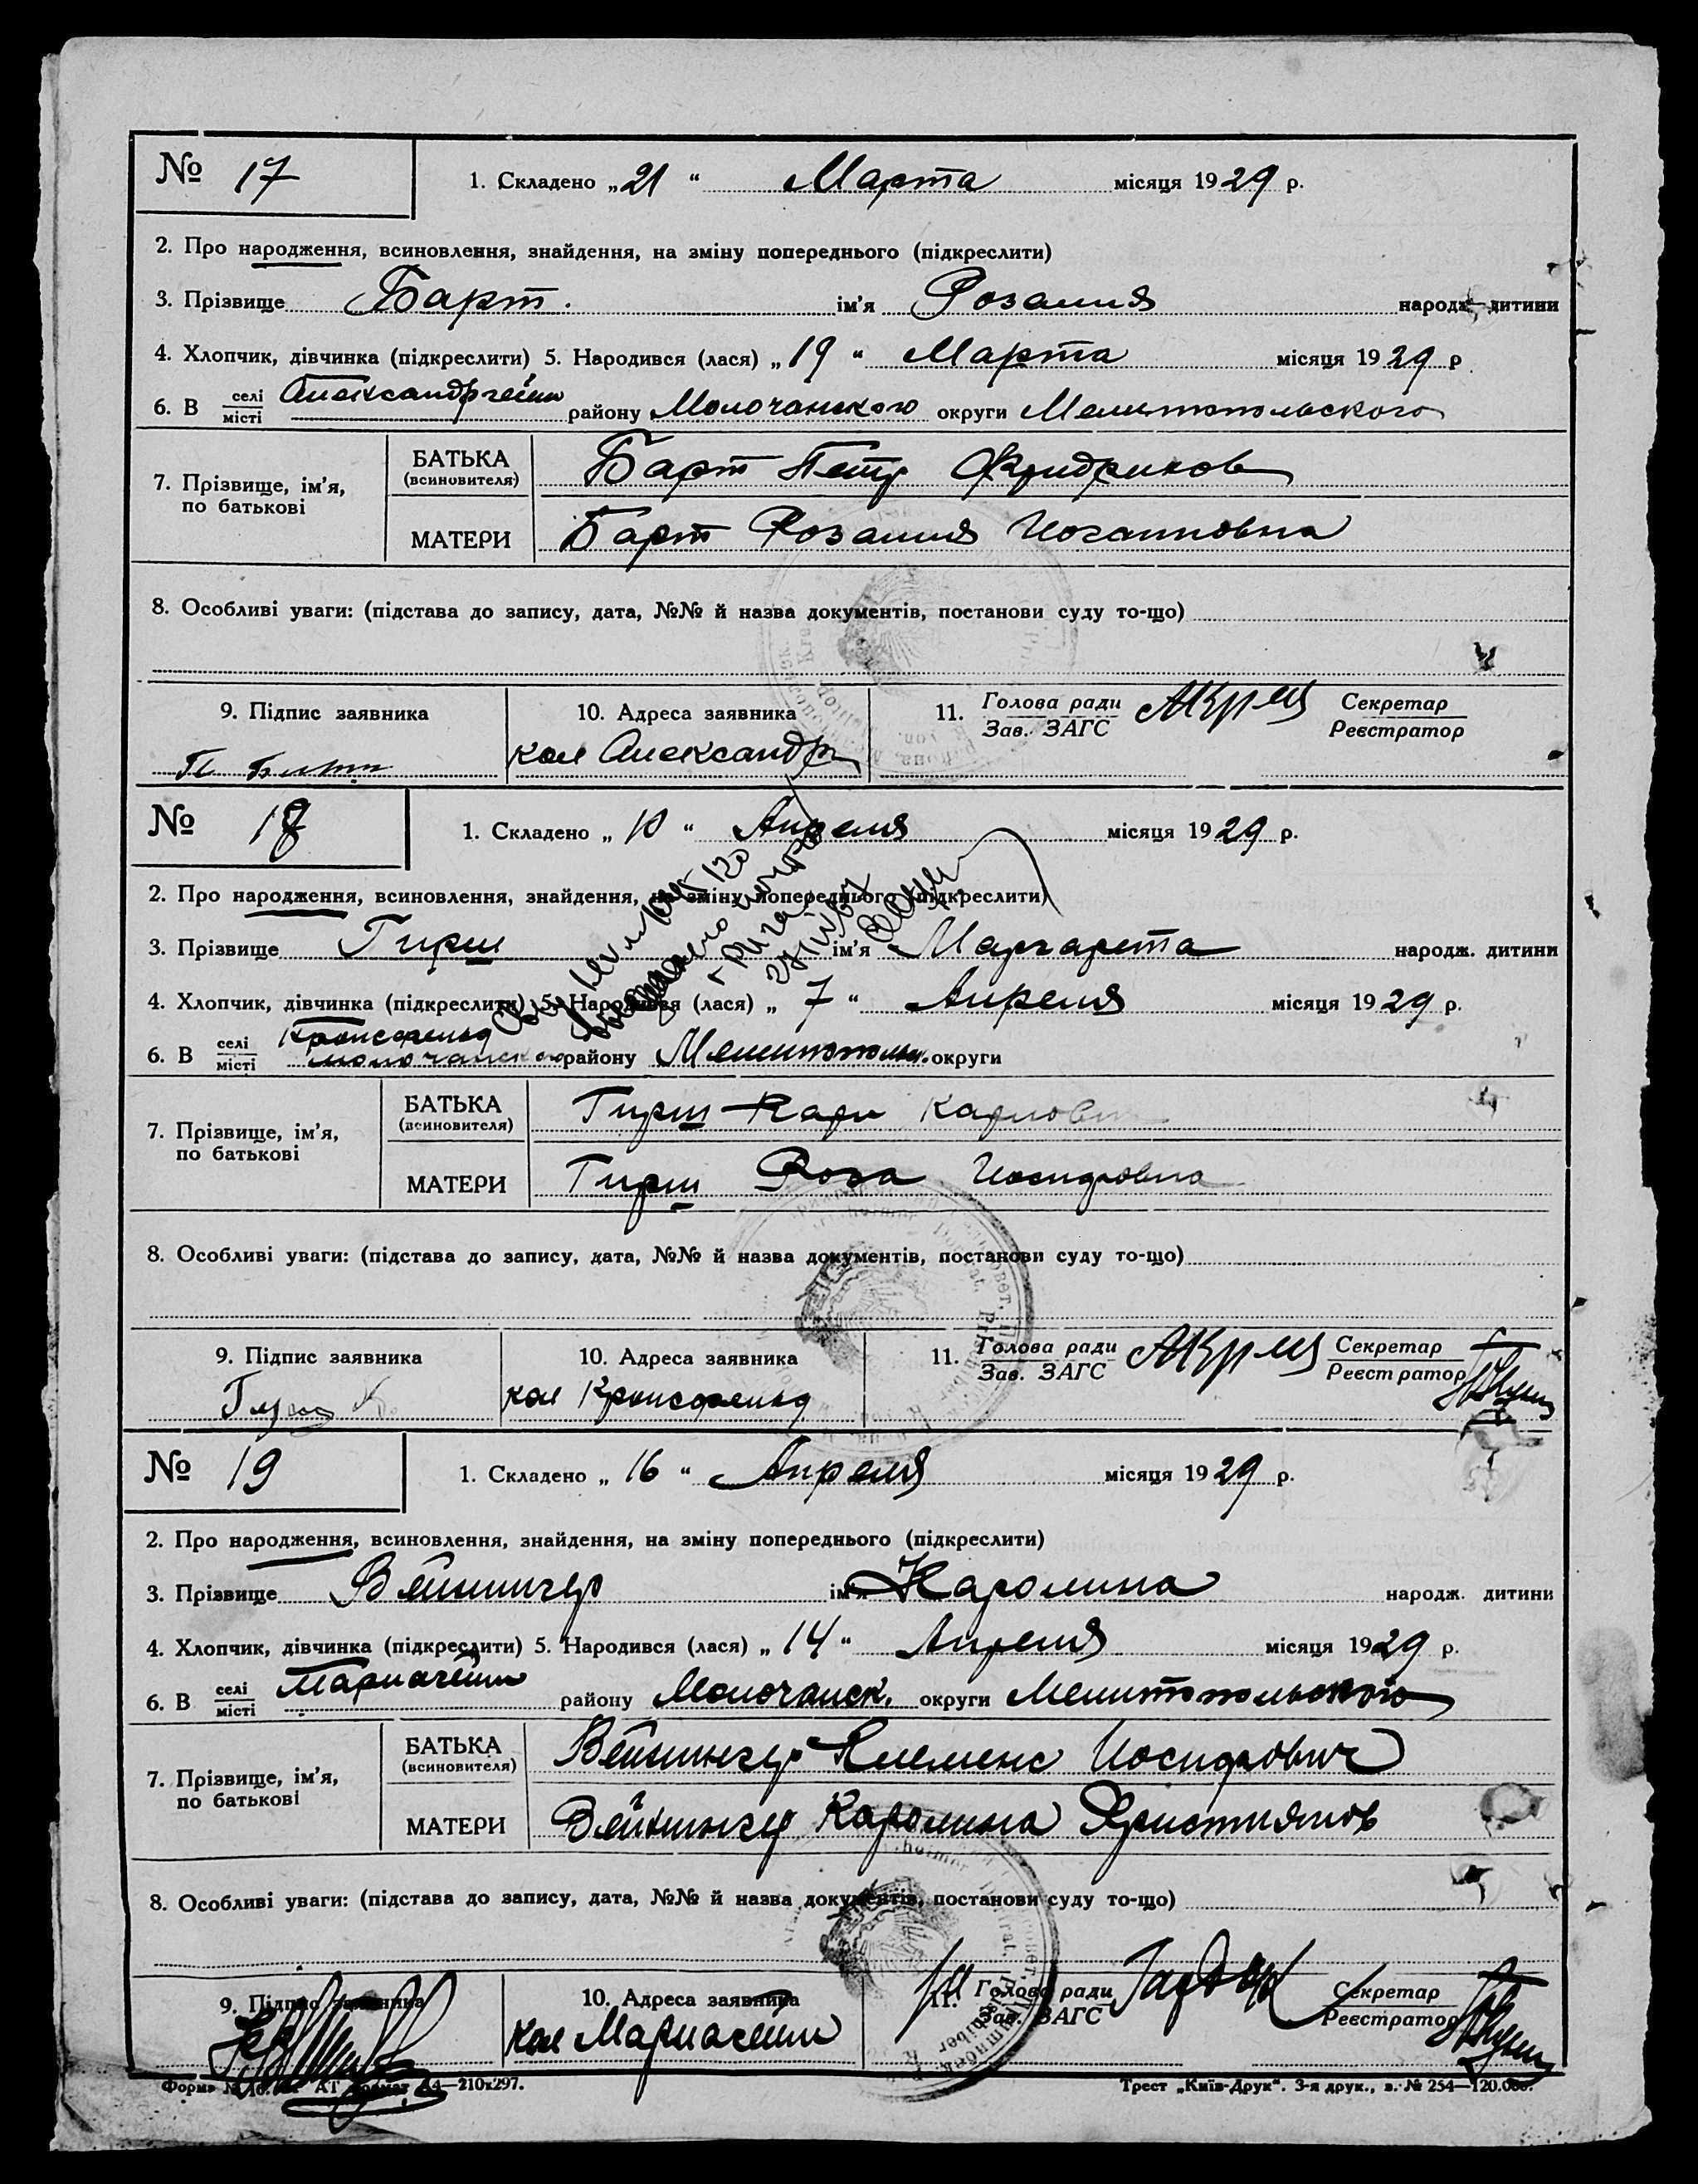 № 17 1. Складено „21“ Марта місяця 1929 р.
2. Про народження, всиновлення, знайдення, на зміну попереднього (підкреслити)
3. Прізвище Барт. ім'я Розалия народж. дитини
4. Хлопчик, дівчинка (підкреслити) 5. Народився (лася) „19“ Марта місяця 1929 р
6. В селі/місті Александргейм району Молочанского округи Мелитопольского
7. Прізвище, ім'я, по батькові
БАТЬКА (всиновителя) Барт Петр Фридрихов
МАТЕРИ Барт Розалия Иогановна
8. Особливі уваги: (підстава до запису, дата, №№ й назва документів, постанови суду то-що)
9. Підпис заявника 10. Адреса заявника 11. Голова ради Секретар
Зав. ЗАГС Реєстратор
кол Александр
№ 18 1. Складено „10“ Апреля місяця 1929 р.
2. Про народження, всиновлення, знайдення, на зміну попереднього (підкреслити)
3. Прізвище Гирш ім'я Маргарета народж. дитини
4. Хлопчик, дівчинка (підкреслити) 5. Народився (лася) „7“ Апреля місяця 1929 р.
6. В селі/місті Кронсфельд Молочанского району Мелитополь. округи
7. Прізвище, ім'я, по батькові
БАТЬКА (всиновителя) Гирш Карл Карлович
МАТЕРИ Гирш Роза Иосифовна
8. Особливі уваги: (підстава до запису, дата, №№ й назва документів, постанови суду то-що)
9. Підпис заявника 10. Адреса заявника 11. Голова ради Секретар
Зав. ЗАГС Реєстратор
Гирш К кол Кронсфельд
№ 19 1. Складено „16“ Апреля місяця 1929 р.
2. Про народження, всиновлення, знайдення, на зміну попереднього (підкреслити)
3. Прізвище ім'я Каролина народж. дитини
4. Хлопчик, дівчинка (підкреслити) 5. Народився (лася) „14“ Апреля місяця 1929 р.
6. В селі/місті Мариагейм району Молочанск. округи Мелитопольского
7. Прізвище, ім'я, по батькові
БАТЬКА (всиновителя) Клеменс Иосифович
МАТЕРИ Каролина Християнов
8. Особливі уваги: (підстава до запису, дата, №№ й назва документів, постанови суду то-що)
9. Підпис заявника 10. Адреса заявника 11. Голова ради Секретар
Зав. ЗАГС Реєстратор
кол Мариагейм
Форма № А4—210x297. Трест „Київ-Друк“. 3-я друк., з. № 254—120.000.